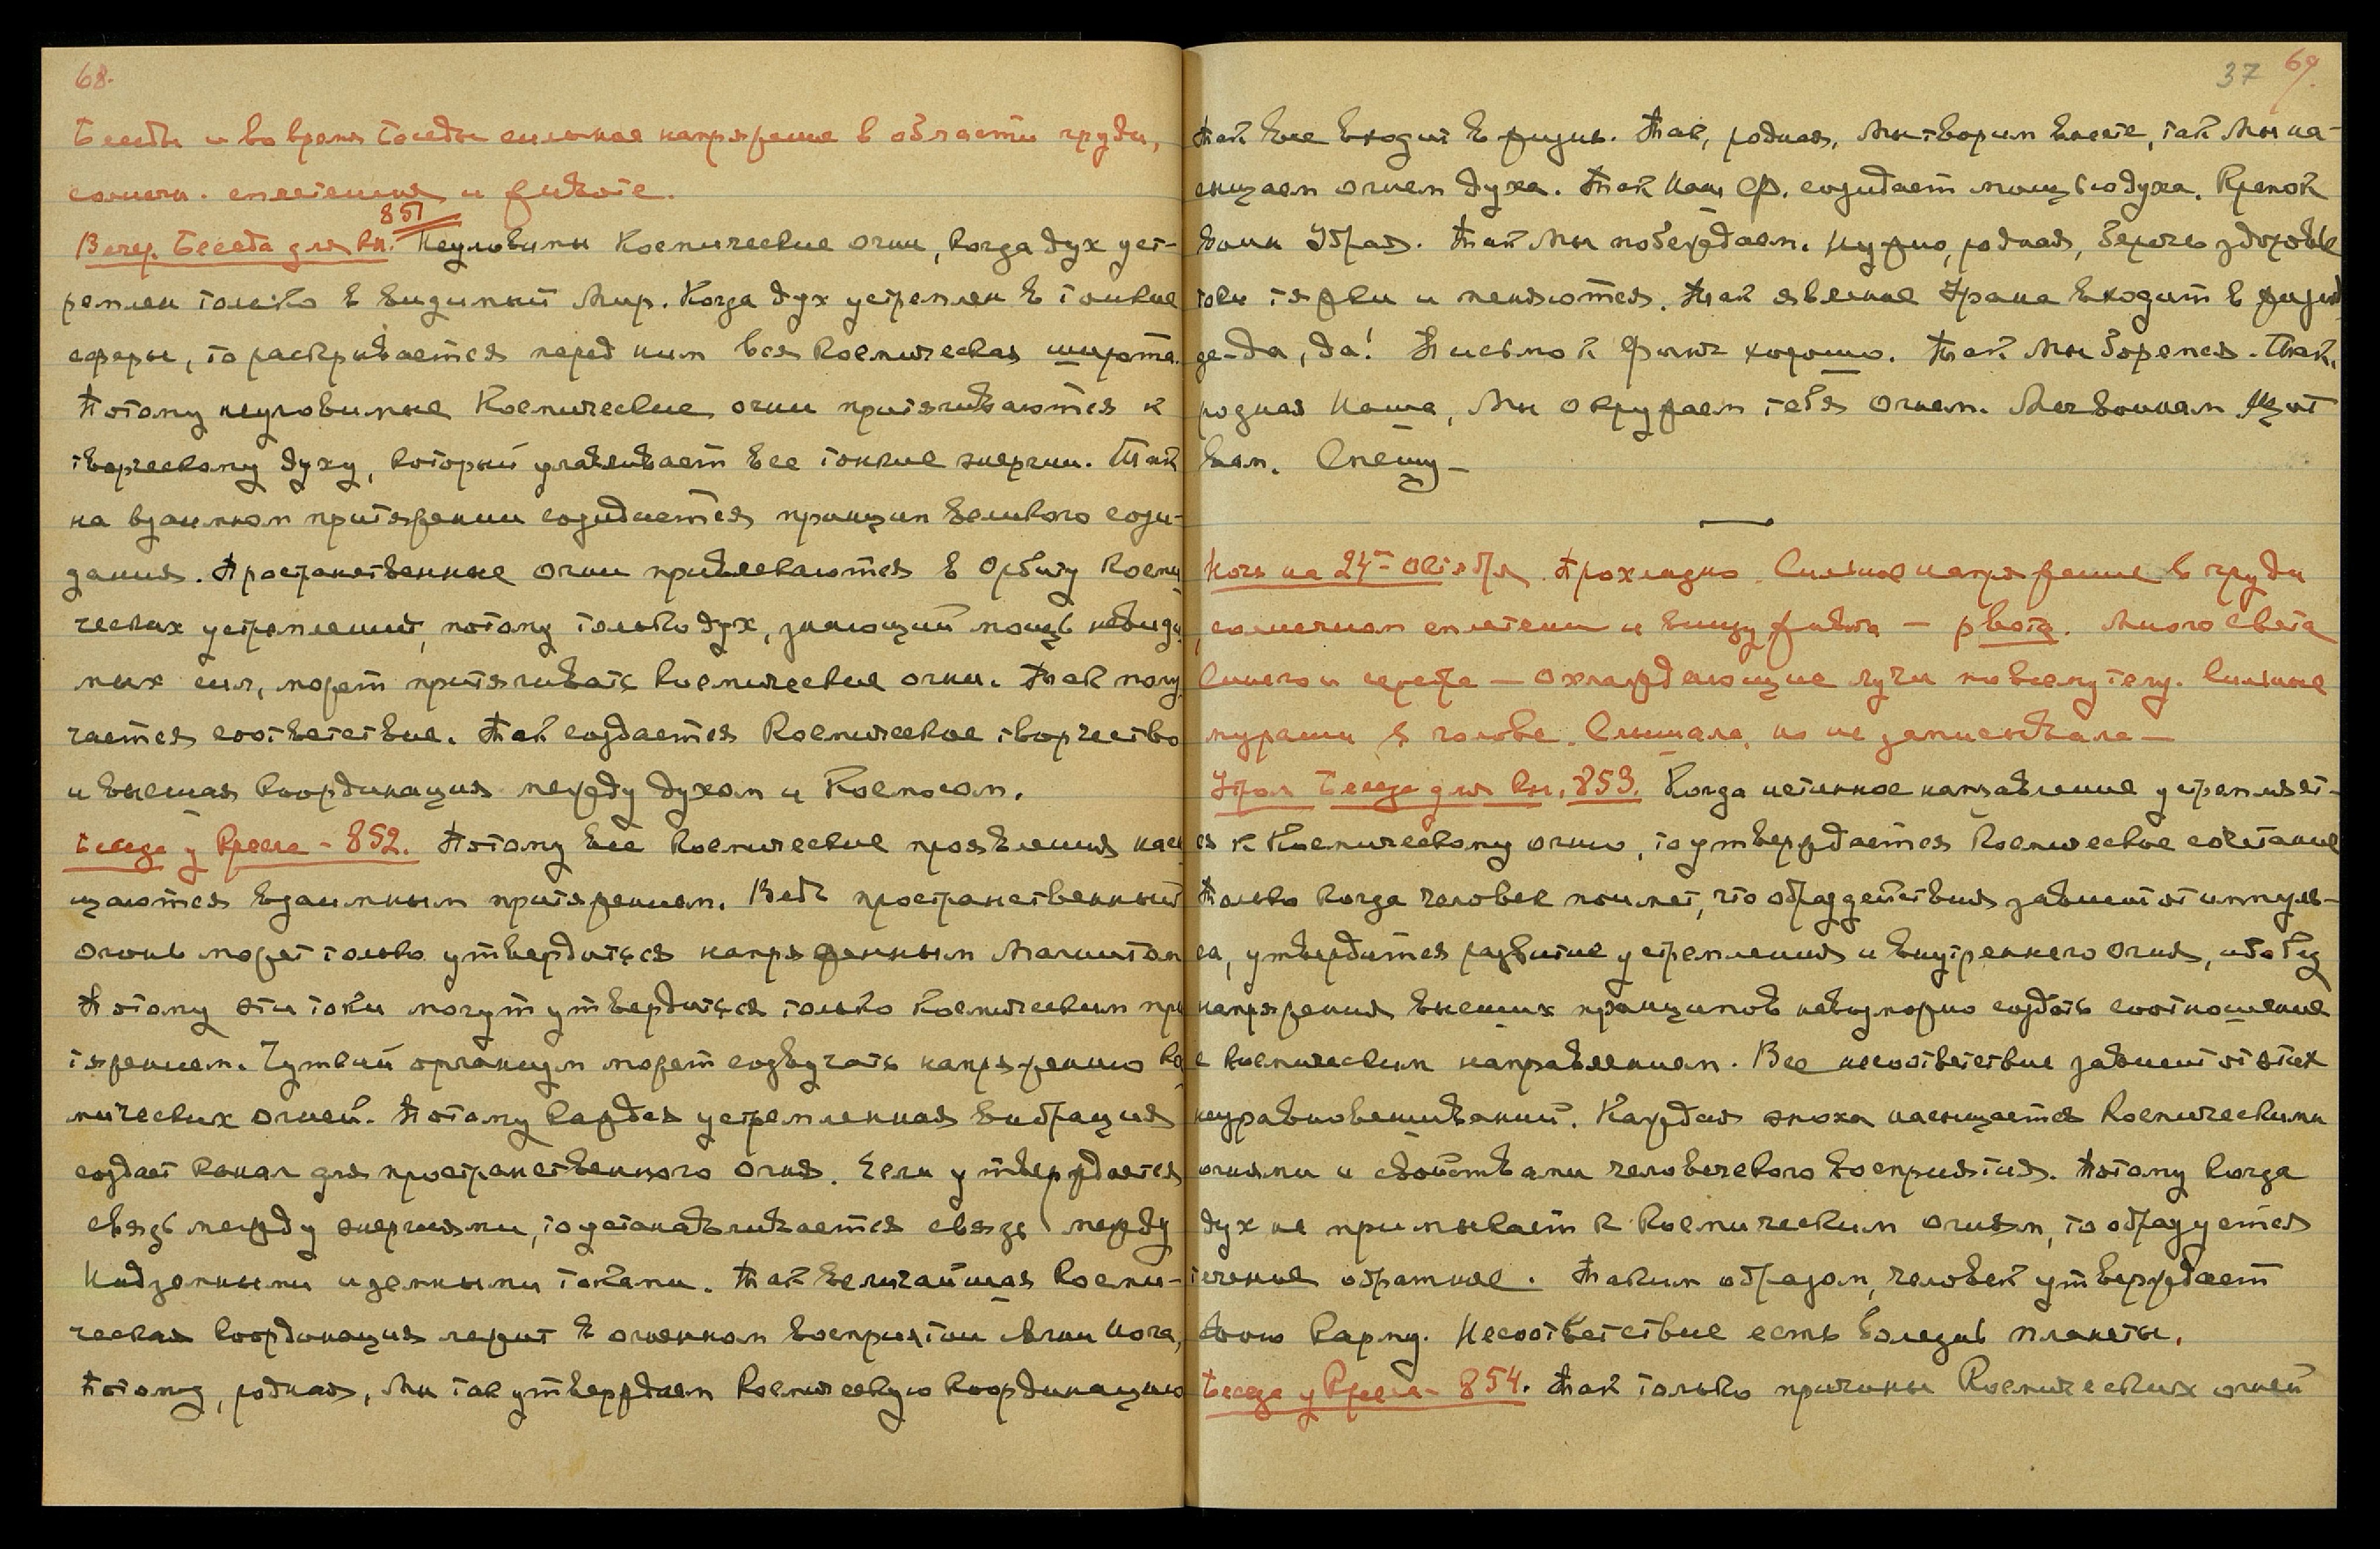 68.
Беседы и во время беседы сильное напряжение в области груди,
солнечн. сплетения и животе.
851
Вечер. Беседа для Кн. Неуловимы Космические огни, когда дух уст-
ремлен только в видимый Мир. Когда дух устремлен в тонкие
сферы, то раскрывается перед ним вся Космическая широта.
Потому неуловимые Космические огни притягиваются к
творческому духу, который улавливает все тонкие энергии. Так
на взаимном притяжении созидается принцип великого сози-
дания. Пространственные огни привлекаются в Орбиту Косми
ческих устремлений, потому только дух, знающий мощь невиди
мых сил, может притягивать Космические огни. Так полу
чается соответствие. Так создается Космическое творчество
и высшая Координация между духом и Космосом.
Беседа у Кресла - 852. Потому все Космические проявления насы
щаются взаимным притяжением. Ведь пространственный
огонь может только утвердиться напряженным Магнитом
Потому эти токи могут утвердиться только Космическим при
тяжением. Чуткий организм может созвучать напряжению Кос
мических огней. Потому каждая устремленная вибрация
создает Канал для пространственного огня. Если утверждается
связь между энергиями, то устанавливается связь между
Надземными и земными токами. Так величайшая Косми-
ческая Координация лежит в огненном восприятии Агни Йога,
Потому, родная, Мы так утверждаем Космическую Координацию
37 69.
Так все входит в жизнь. Так, родная, Мы творим вместе, так Мы на-
сыщаем огнем духа. Так Наш Ф. созидает мощью духа. Крепок
воин Удрая. Так Мы побеждаем. Нужно, родная, беречь здоровье
токи тяжки и меняются. Так явление Храма входит в жизнь
да-да, да! Письмо к хорошо. Так Мы боремся. Так,
родная Наша, Мы окружаем тебя огнем. Щит
вам. Спешу —
Ночь на 24-Октября Прохладно. Сильное напряжение в груди
солнечном сплетении и внизу живота — рвота. Много света
Синего и серебра — Охлаждающие лучи по всему телу. Сильные
мураши в голове. Слышала, но не записывала —
Утром Беседа для Кн. 853. Когда истинное направление устремляет-
ся к Космическому огню, то утверждается Космическое сочетание
Только когда человек поймет, что образ действия зависит от импуль-
са, утвердится развитие устремления и внутреннего огня, ибо без
напряжения высших принципов невозможно создать соотношение
с Космическим направлением. Все несоответствие зависит от этих
неуравновешиваний. Каждая эпоха насыщается Космическими
огнями и свойствами человеческого восприятия. Потому когда
дух не примыкает к Космическим огням, то образуется
течение обратное. Таким образом, человек утверждает
свою Карму. Несоответствие есть болезнь планеты.
Беседа у Кресла - 854. Так только причины Космических огней